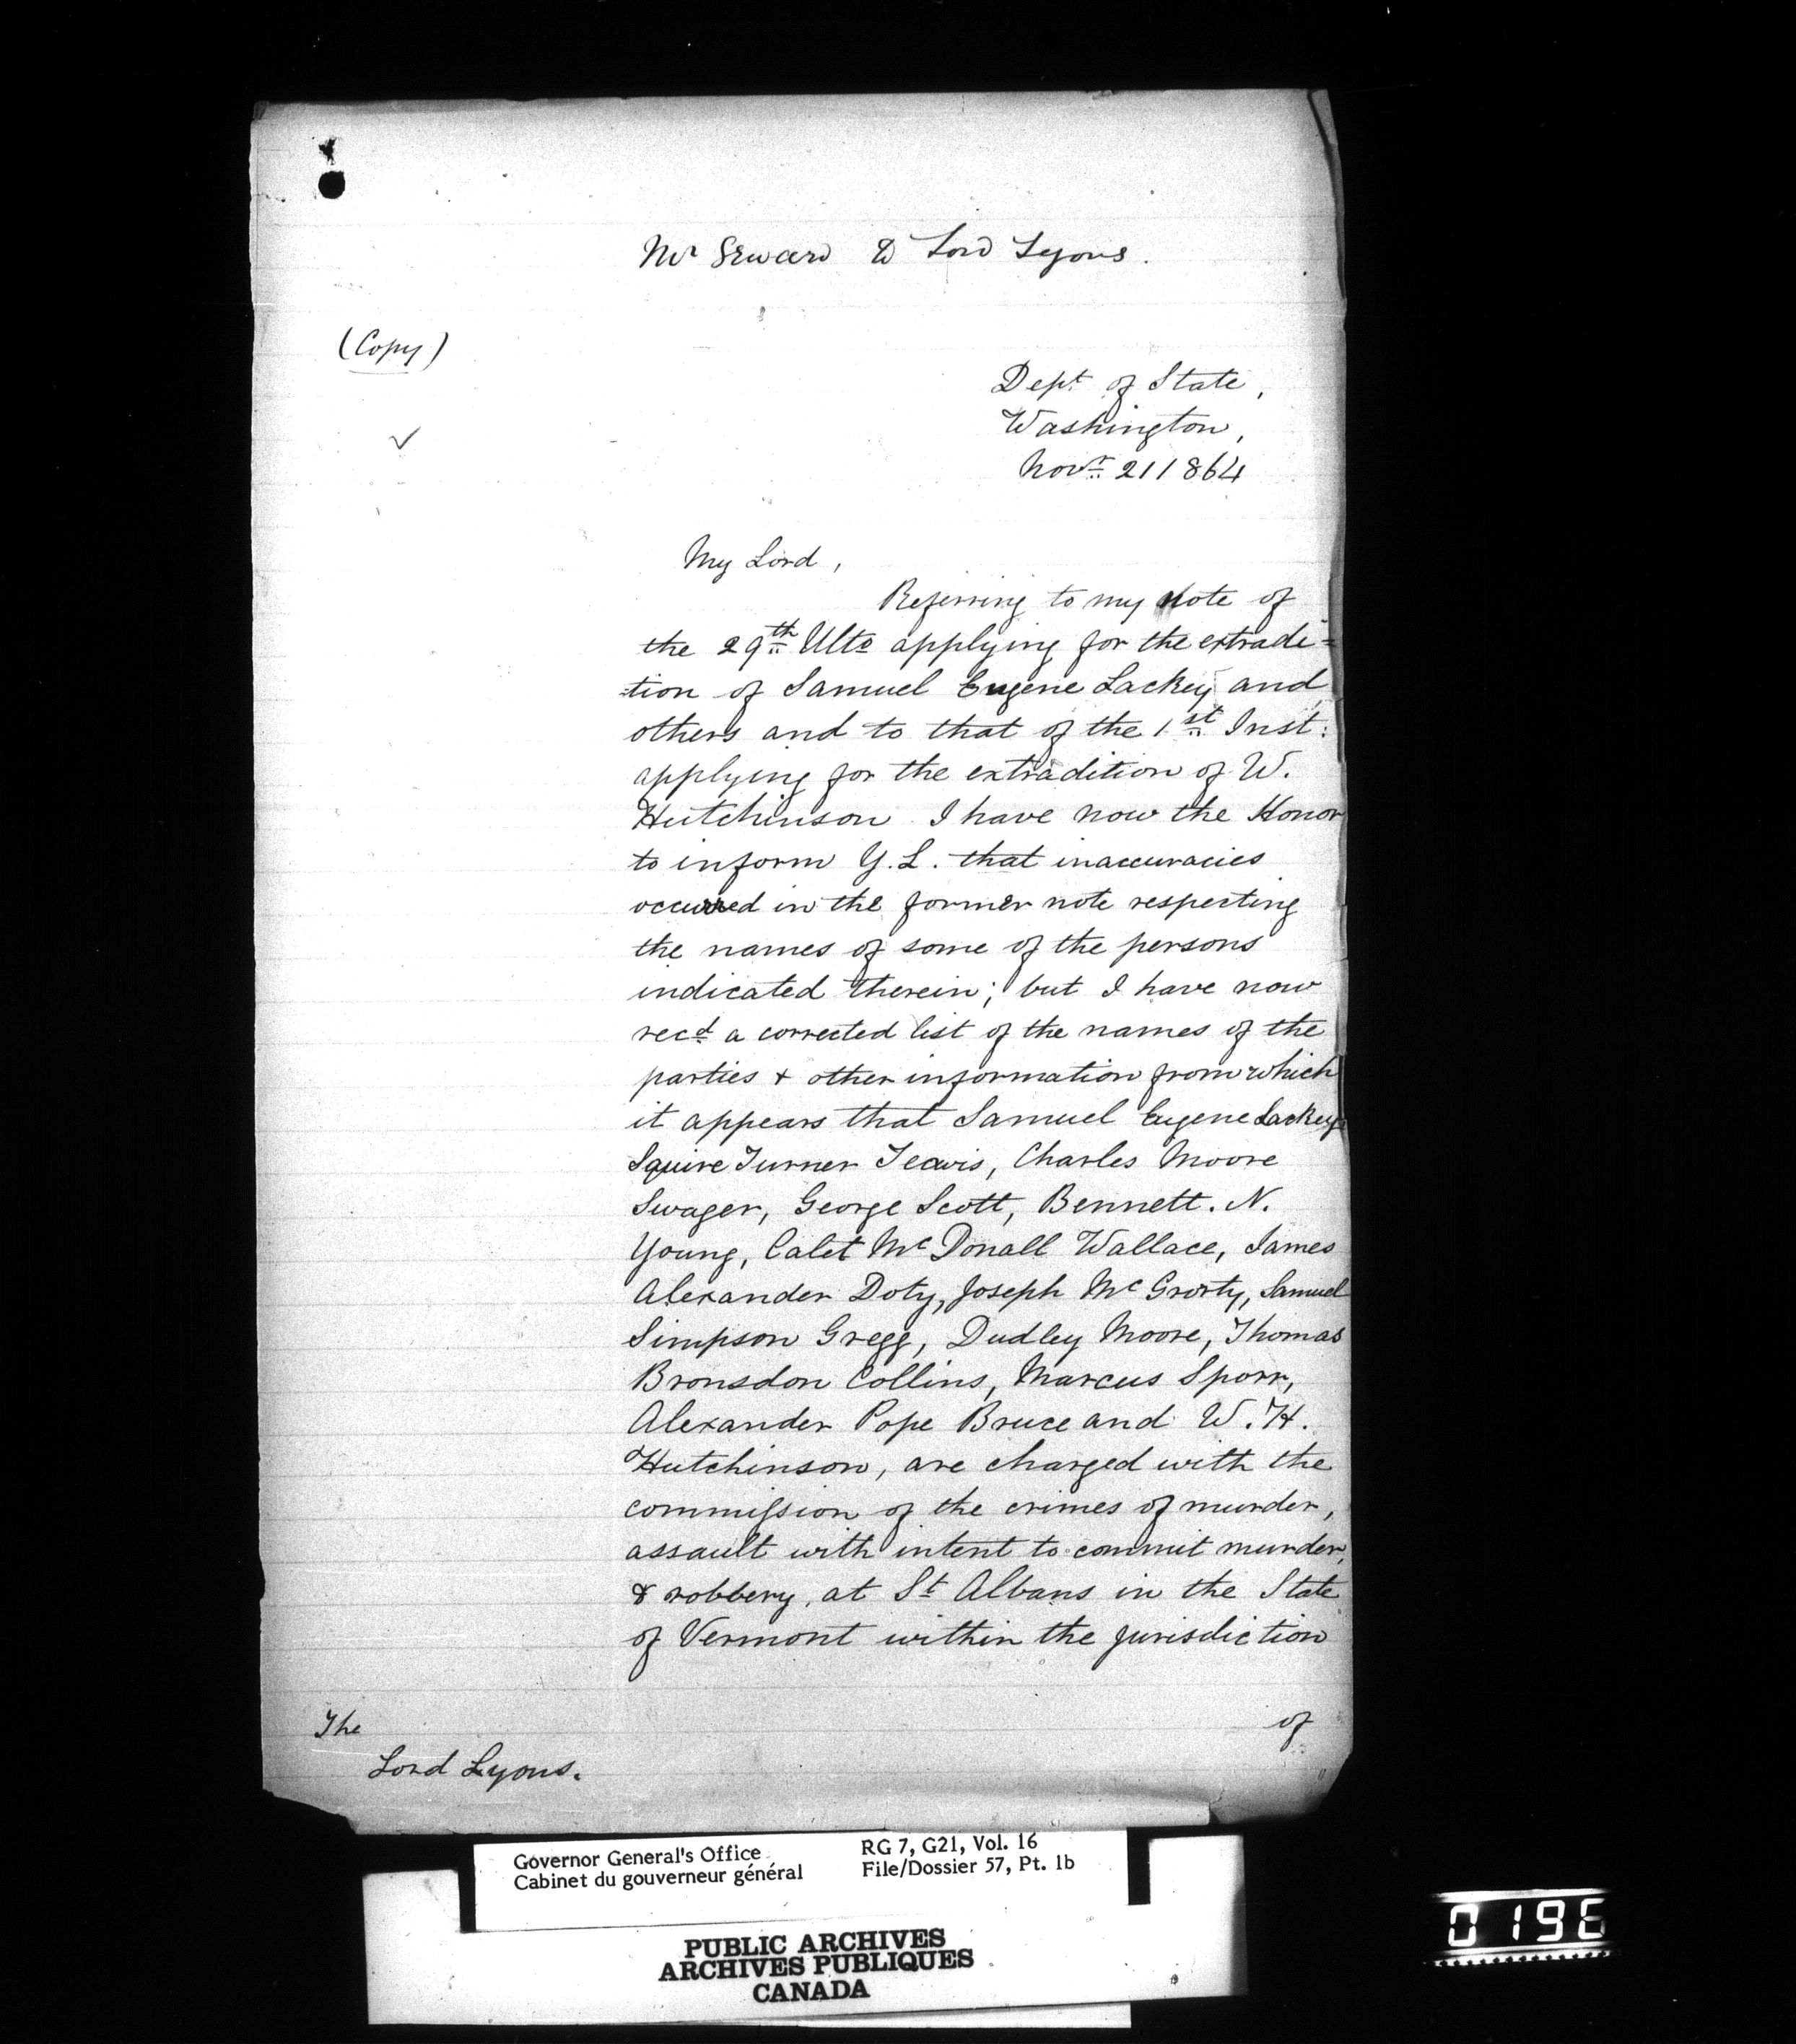 Mr Seward to Lord Lyons.
(Copy)
Dept of State,
Washington,
Novr 21 1864
My Lord,
Referring to my note of
the 29th Ulto applying for the extradi=
=tion of Samuel Eugene Lackey and
others and to that of the 1st Inst:
applying for the extradition of W.
Hutchinson I have now the Honor
to inform Y.L. that inaccuracies
occurred in the former note respecting
the names of some of the persons
indicated therein; but I have now
recd a corrected list of the names of the
parties & other information from which
it appears that Samuel Eugene Lackey
Squire Turner Teavis, Charles Moore
Swager, George Scott, Bennett. N.
Young, Calet McDonall Wallace, James
Alexander Doty, Joseph McGrorty, Samuel
Simpson Gregg, Dudley Moore, Thomas
Bronsdon Collins, Marcus Sporr,
Alexander Pope Bruce and W. H.
Hutchinson, are charged with the
commission of the crimes of murder,
assault with intent to commit murder,
& robbery, at St Albans in the State
of Vermont within the jurisdiction
of
The
Lord Lyons.
Governor General's Office
Cabinet du gouverneur général
RG 7, G21, Vol. 16
File/Dossier 57, Pt. 1b
PUBLIC ARCHIVES
ARCHIVES PUBLIQUES
CANADA